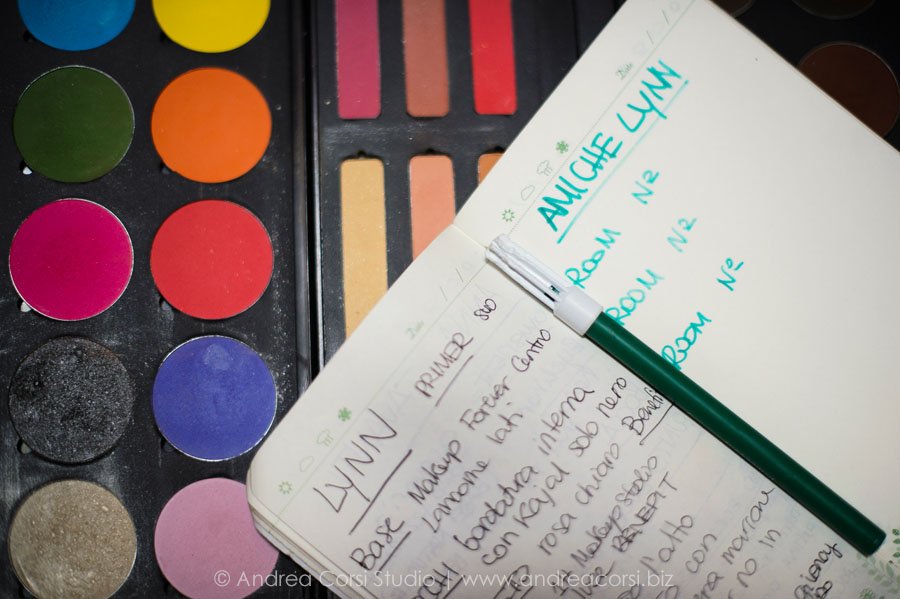 LYNN
PRIMER suo
Base Makeup Forever Centro
Lancome lati
bordatura interna
con Kajal solo nero
rosa chiaro Benefi
Makeupstudio
BENEFIT
con
marrau
no in
Date
AMICHE LYNN
ROOM Nº
ROOM Nº
ROOM Nº
Date
© Andrea Corsi Studio | www.andreacorsi.biz